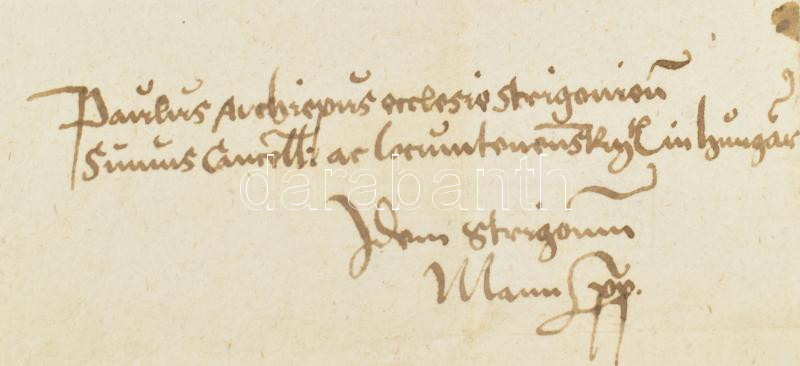 Paulus Archiepus ecclesie Strigonien
Sumus Cancell: ac locumtenens Reg in Hungar
darabanth
Idem Strigonien
Manu pp.